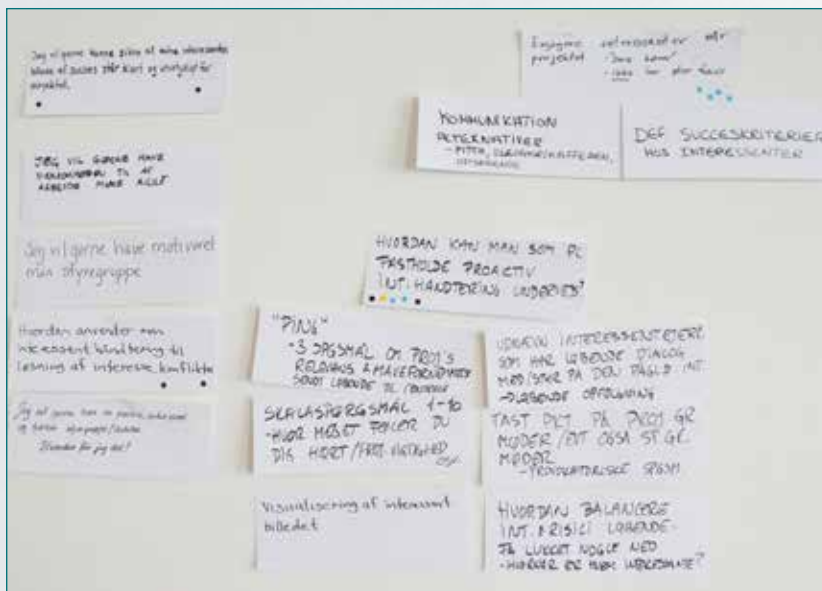 Jeg vil gerne kunne sikre at mine interessenters
billede af succes står klart og for
projektet.
JEG VIL GERNE HAVE
TIL AT
ARBEJDE MERE AGILT
Jeg vil gerne have motiveret
min styregruppe
Hvordan anvender man
interessenthåndtering til
løsning af interesse konflikter
Jeg vil gerne have en
og
Hvordan får jeg det?
Engagere interessenter
projektet
- ikke har
KOMMUNIKATION
ALTERNATIVER
- PITCH,
DEF SUCCESKRITERIER
HOS INTERESSENTER
HVORDAN KAN MAN SOM PL
FASTHOLDE PROACTIV
INT. HÅNDTERING UNDERVEJS?
"PING"
- 3 SPGSMÅL OM PROJ'S
RELEVANS &
SENDT LØBENDE TIL
SKALASPØRGSMÅL 1-10
- HVOR MEGET FØLER DU
DIG HØRT / PROJ. VIGTIGHED
OSV.
Visualisering af interessent
billedet
INTERESSENTEJERE
SOM HAR LØBENDE DIALOG
MED/STYR PÅ DEN PÅGLD. INT.
→ LØBENDE OPFØLGNING
FAST PKT. PÅ PROJ GR
MØDER / EVT OGSÅ ST GR.
MØDER
- PROVOKATORISKE SPGSM
HVORDAN BALANCERE
INT. & RISICI LØBENDE
FÅ LUKKET NOGLE NED
- HVORNÅR ER HVEM INTERESSANTE?